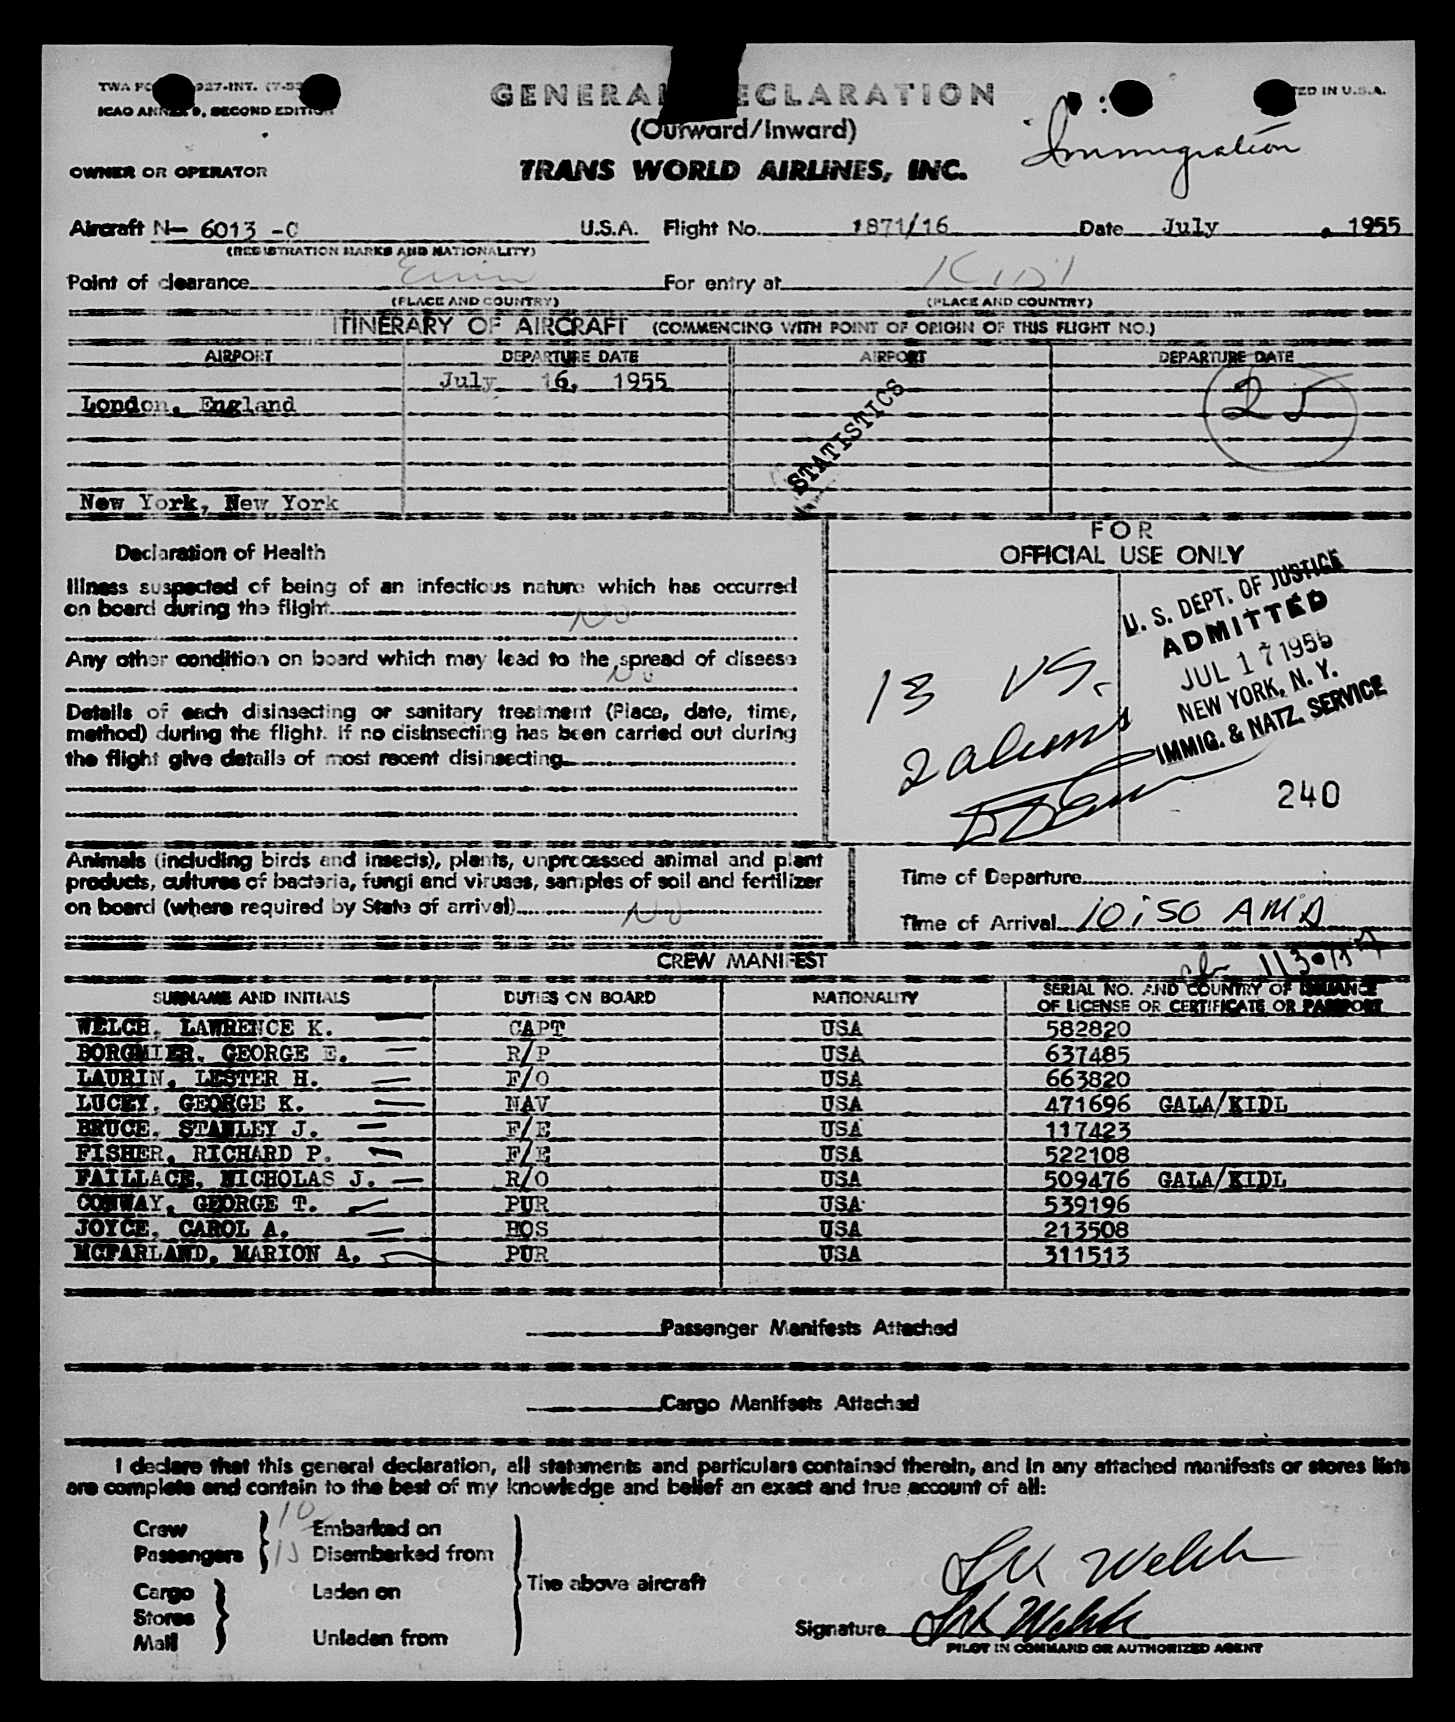 GENERAL DECLARATION
(Outward/Inward)
Immigration
OWNER OR OPERATOR
TRANS WORLD AIRLINES, INC.
Aircraft N- 6013 -C U.S.A. Flight No. 1871/16 Date July , 1955
(REGISTRATION MARKS AND NATIONALITY)
Point of clearance For entry at KIDL
(PLACE AND COUNTRY) (PLACE AND COUNTRY)
ITINERARY OF AIRCRAFT (COMMENCING WITH POINT OF ORIGIN OF THIS FLIGHT NO.)
AIRPORT DEPARTURE DATE AIRPORT DEPARTURE DATE
July 16, 1955
London, England
25
STATISTICS
New York, New York
Declaration of Health
FOR
OFFICIAL USE ONLY
Illness suspected of being of an infectious nature which has occurred
on board during the flight. No
Any other condition on board which may lead to the spread of disease
No
Details of each disinsecting or sanitary treatment (Place, date, time,
method) during the flight. If no disinsecting has been carried out during
the flight give details of most recent disinsecting
U. S. DEPT. OF JUSTICE
ADMITTED
JUL 17 1955
NEW YORK, N. Y.
IMMIG. & NATZ. SERVICE
13 US.
2 aliens
240
Animals (including birds and insects), plants, unprocessed animal and plant
products, cultures of bacteria, fungi and viruses, samples of soil and fertilizer
on board (where required by State of arrival) No
Time of Departure
Time of Arrival 10:50 AMA
CREW MANIFEST
SURNAME AND INITIALS DUTIES ON BOARD NATIONALITY SERIAL NO. AND COUNTRY OF ISSUANCE
OF LICENSE OR CERTIFICATE OR PASSPORT
WELCH, LAWRENCE K. CAPT USA 582820
BORGMIER, GEORGE E. R/P USA 637485
LAURIN, LESTER H. F/O USA 663820
LUCEY, GEORGE K. NAV USA 471696 GALA/KIDL
BRUCE, STANLEY J. F/E USA 117423
FISHER, RICHARD P. F/E USA 522108
FAILLACE, NICHOLAS J. R/O USA 509476 GALA/KIDL
CONWAY, GEORGE T. PUR USA 539196
JOYCE, CAROL A. HOS USA 213508
MCFARLAND, MARION A. PUR USA 311513
Passenger Manifests Attached
Cargo Manifests Attached
I declare that this general declaration, all statements and particulars contained therein, and in any attached manifests or stores lists
are complete and contain to the best of my knowledge and belief an exact and true account of all:
Crew 10 Embarked on
Passengers 15 Disembarked from
The above aircraft
Cargo Laden on
Stores
Mail Unladen from
LK Welch
Signature LK Welch
PILOT IN COMMAND OR AUTHORIZED AGENT